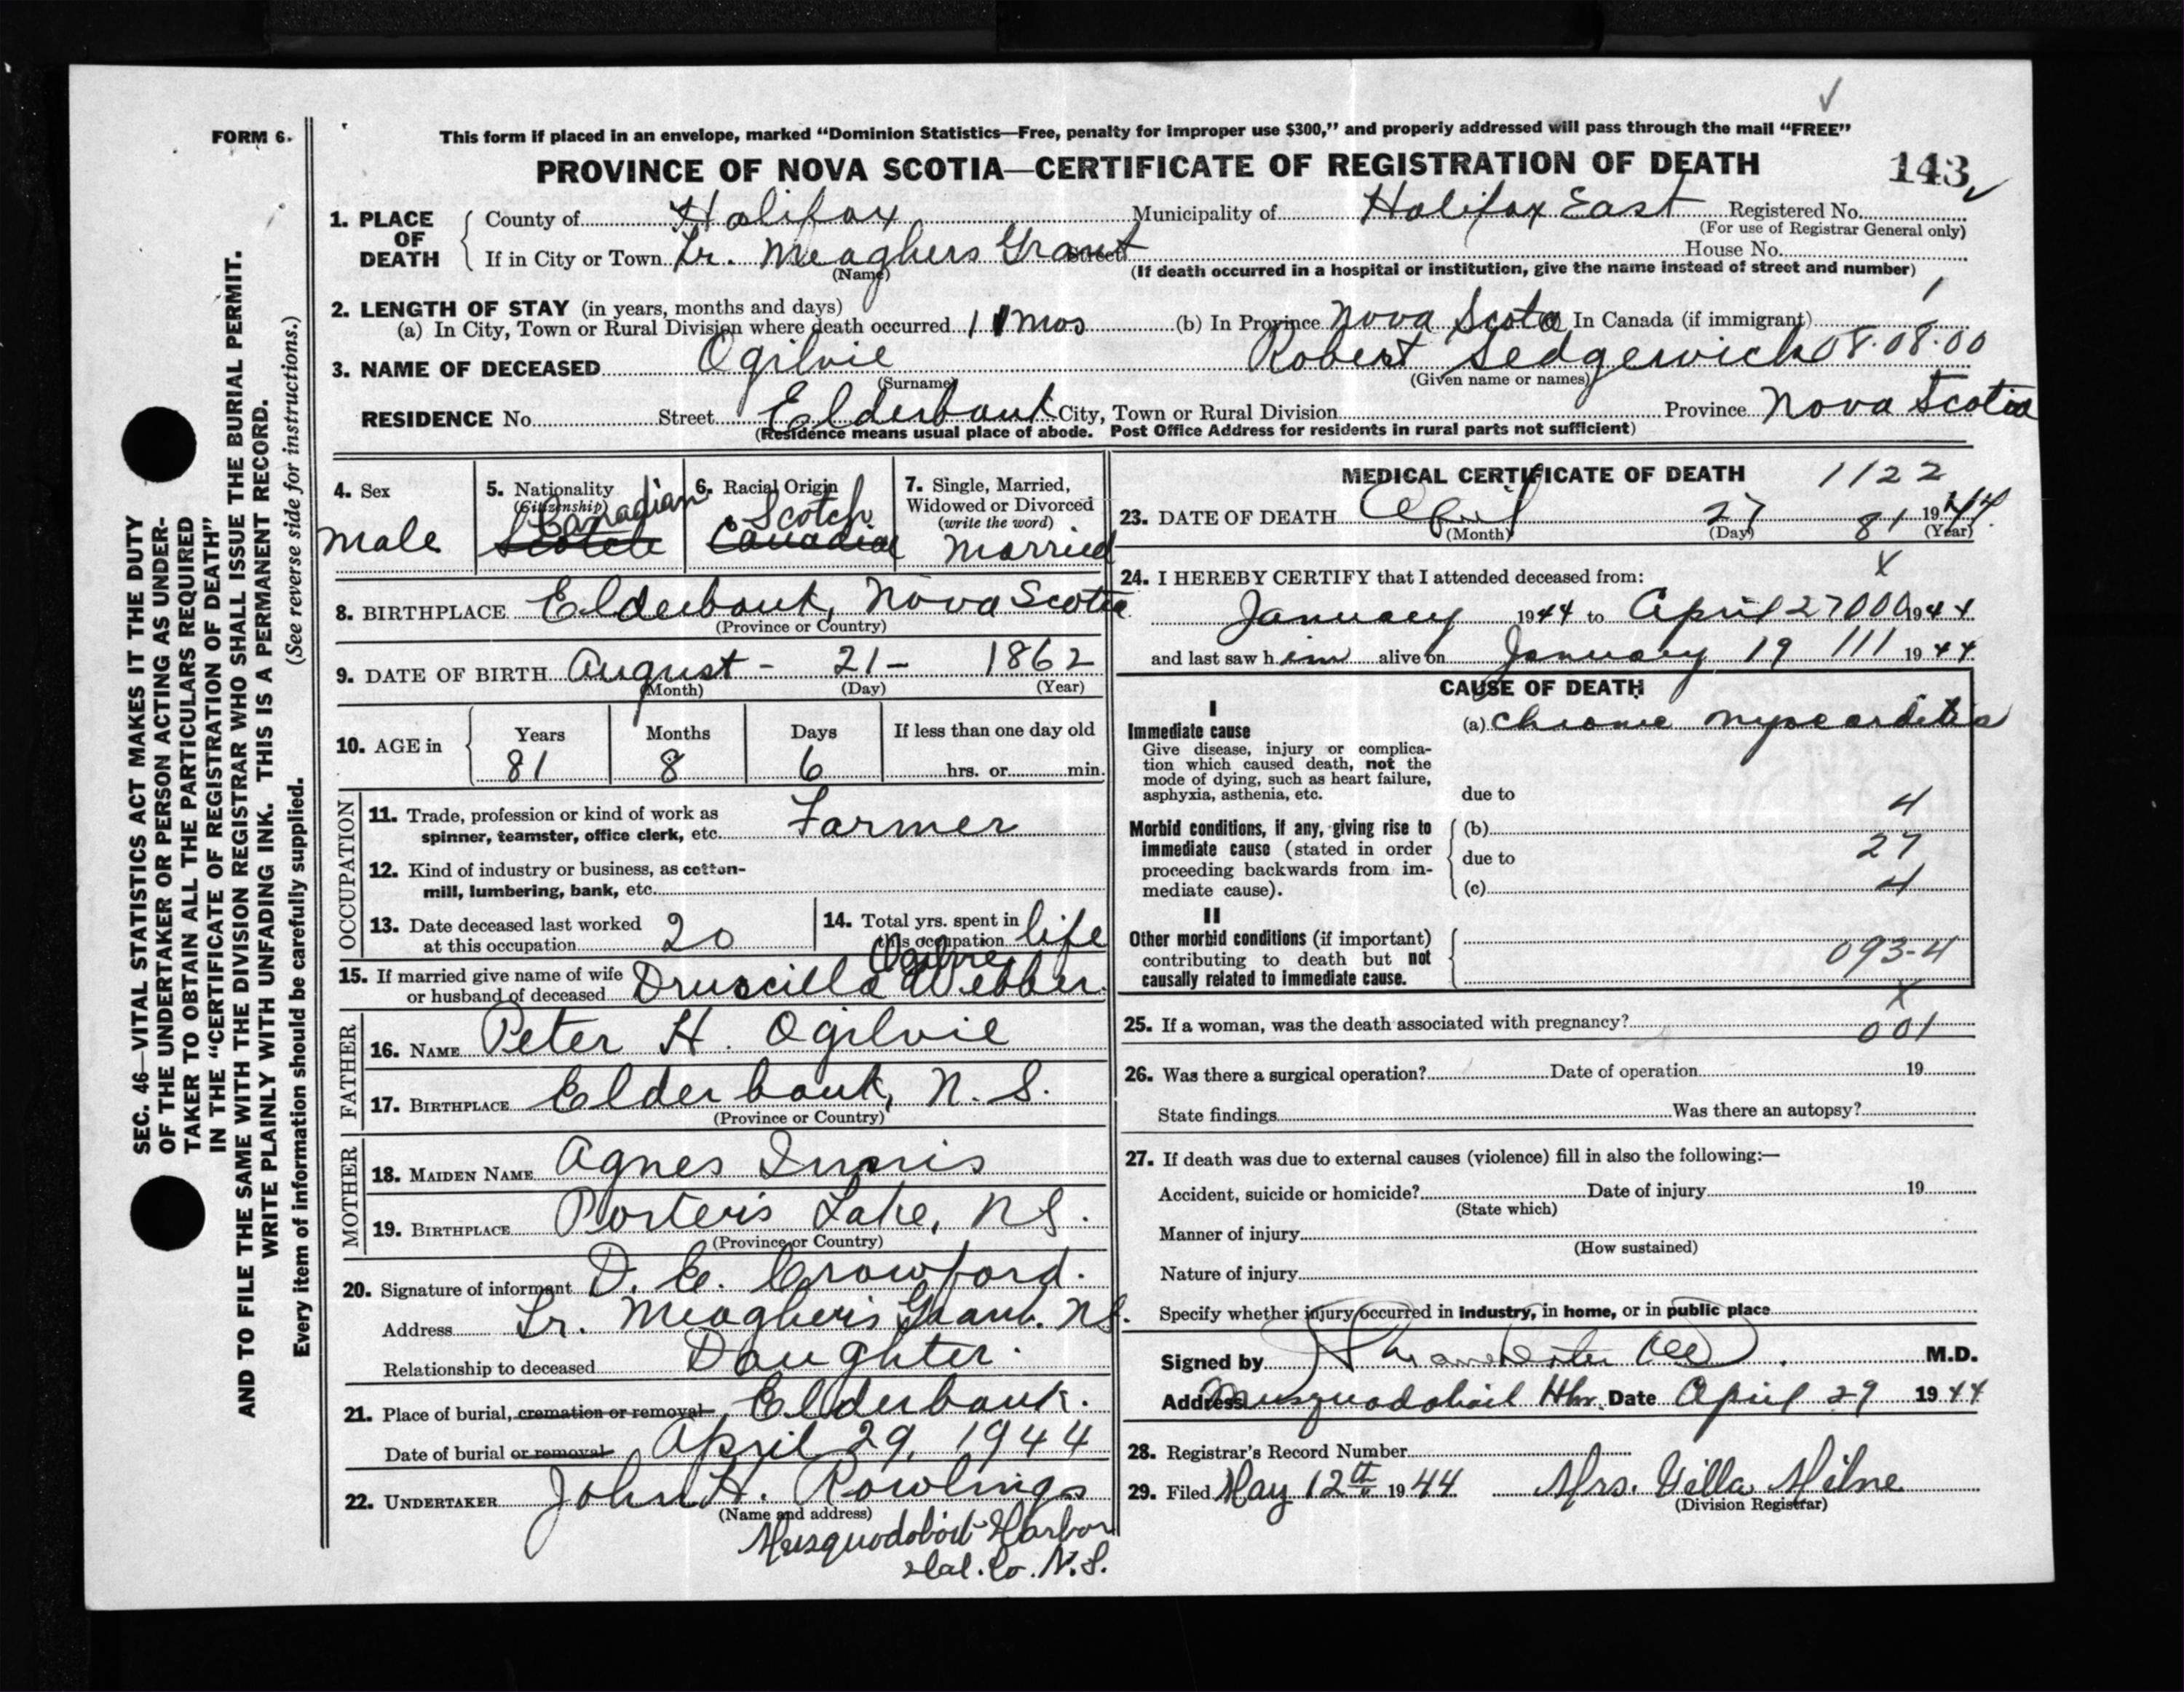 FORM 6.
This form if placed in an envelope, marked “Dominion Statistics—Free, penalty for improper use $300,” and properly addressed will pass through the mail “FREE”
PROVINCE OF NOVA SCOTIA—CERTIFICATE OF REGISTRATION OF DEATH 143
1. PLACE OF DEATH
County of Halifax Municipality of Halifax East Registered No.
(For use of Registrar General only)
If in City or Town Lr. Meaghers Grant Street House No.
(Name) (If death occurred in a hospital or institution, give the name instead of street and number)
2. LENGTH OF STAY (in years, months and days)
(a) In City, Town or Rural Division where death occurred 11 mos (b) In Province Nova Scotia In Canada (if immigrant) 1
3. NAME OF DECEASED Ogilvie Robert Sedgewick 08.08.00
(Surname) (Given name or names)
RESIDENCE No. Street Elderbank City, Town or Rural Division Province Nova Scotia
(Residence means usual place of abode. Post Office Address for residents in rural parts not sufficient)
4. Sex
male
5. Nationality
(Citizenship)
Canadian
Scotch
6. Racial Origin
Scotch
Canadian
7. Single, Married,
Widowed or Divorced
(write the word)
married
8. BIRTHPLACE Elderbank, Nova Scotia
(Province or Country)
9. DATE OF BIRTH August - 21 - 1862
(Month) (Day) (Year)
10. AGE in Years Months Days If less than one day old
81 8 6 hrs. or min.
OCCUPATION
11. Trade, profession or kind of work as
spinner, teamster, office clerk, etc. Farmer
12. Kind of industry or business, as cotton-
mill, lumbering, bank, etc.
13. Date deceased last worked
at this occupation 20
14. Total yrs. spent in
this occupation life
15. If married give name of wife
or husband of deceased Druscilla Webber
FATHER
16. NAME Peter H. Ogilvie
17. BIRTHPLACE Elderbank, N. S.
(Province or Country)
MOTHER
18. MAIDEN NAME Agnes
19. BIRTHPLACE Porter's Lake, N.S.
(Province or Country)
20. Signature of informant D. E. Crawford.
Address Lr. Meagher's Grant. N.S.
Relationship to deceased Daughter.
21. Place of burial, cremation or removal Elderbank.
Date of burial or removal April 29, 1944
22. UNDERTAKER John H. Rowlings
(Name and address)
Musquodoboit Harbor
Hal. Co. N.S.
MEDICAL CERTIFICATE OF DEATH 1122
23. DATE OF DEATH April 27 1944
(Month) (Day) 81 (Year)
X
24. I HEREBY CERTIFY that I attended deceased from:
January 1944 to April 27 000 1944
and last saw him alive on January 19 111 1944
CAUSE OF DEATH
I
Immediate cause
Give disease, injury or complica-
tion which caused death, not the
mode of dying, such as heart failure,
asphyxia, asthenia, etc.
(a) chronic myocarditis
due to
4
Morbid conditions, if any, giving rise to
immediate cause (stated in order
proceeding backwards from im-
mediate cause).
(b)
due to 27
(c) 4
II
Other morbid conditions (if important)
contributing to death but not
causally related to immediate cause.
093-4
X
25. If a woman, was the death associated with pregnancy? 001
26. Was there a surgical operation? Date of operation 19
State findings Was there an autopsy?
27. If death was due to external causes (violence) fill in also the following:—
Accident, suicide or homicide? Date of injury 19
(State which)
Manner of injury
(How sustained)
Nature of injury
Specify whether injury occurred in industry, in home, or in public place
Signed by M.D.
Address Musquodoboit Hbr. Date April 29 1944
28. Registrar's Record Number
29. Filed May 12th 1944 Mrs. Milne
(Division Registrar)
SEC. 46—VITAL STATISTICS ACT MAKES IT THE DUTY
OF THE UNDERTAKER OR PERSON ACTING AS UNDER-
TAKER TO OBTAIN ALL THE PARTICULARS REQUIRED
IN THE “CERTIFICATE OF REGISTRATION OF DEATH”
AND TO FILE THE SAME WITH THE DIVISION REGISTRAR WHO SHALL ISSUE THE BURIAL PERMIT.
WRITE PLAINLY WITH UNFADING INK. THIS IS A PERMANENT RECORD.
Every item of information should be carefully supplied. (See reverse side for instructions.)